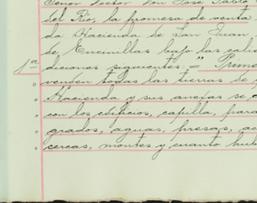 Señor Doctor Don José Pablo
del Río, la promesa de venta
da Hacienda de San Juan
de Encinillas bajo las
diciones siguientes = "Prime
1ª
venden todas las tierras de
Hacienda y sus anejas se
con los edificios, capilla, para
grados, aguas, presas, ac
cercas, montes y cuanto